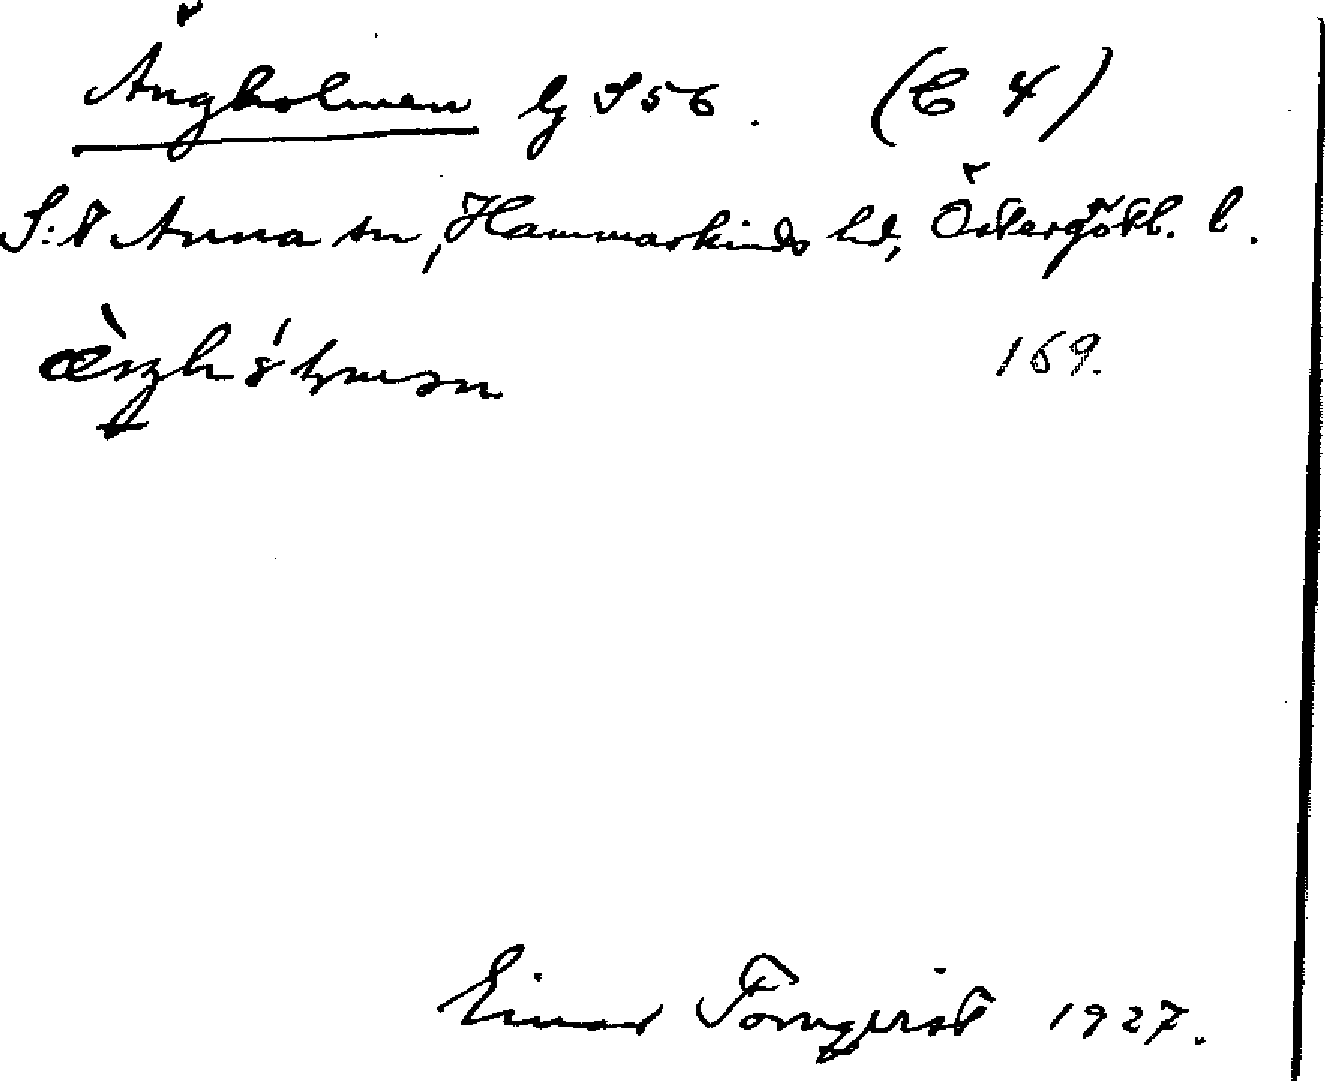 Ängholmen lg S56. (C 4)
S:t Anna sn, Hammarkinds hd, Östergötl. l.
169.
Einar Tornqvist 1927.